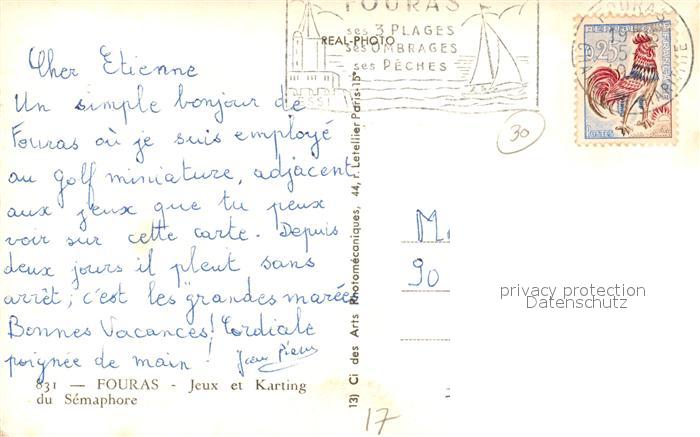 Cher Etienne
Un simple bonjour de
Fouras où je suis employé
au golf miniature, adjacent
aux jeux que tu peux
voir sur cette carte. Depuis
deux jours il pleut sans
arrêt; c'est les "grandes marées
Bonnes Vacances! Cordiale
poignée de main! Jean Pierre
831 — FOURAS - Jeux et Karting
du Sémaphore
FOURAS
ses 3 PLAGES
ses OMBRAGES
ses PÊCHES
REAL-PHOTO
13) Ci des Arts Photomécaniques, 44, r. Letellier Paris-15e
FOURAS
0,25
POSTES
30
M.
90
privacy protection
Datenschutz
17